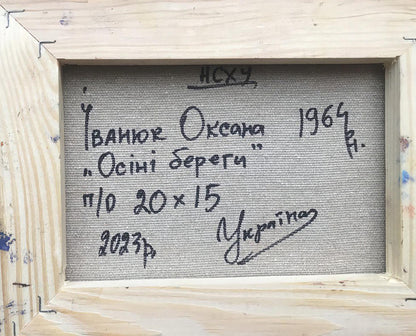 НСХУ
Іванюк Оксана 1964 р.н.
„Осіні береги"
п/о 20×15
2023р, Україна